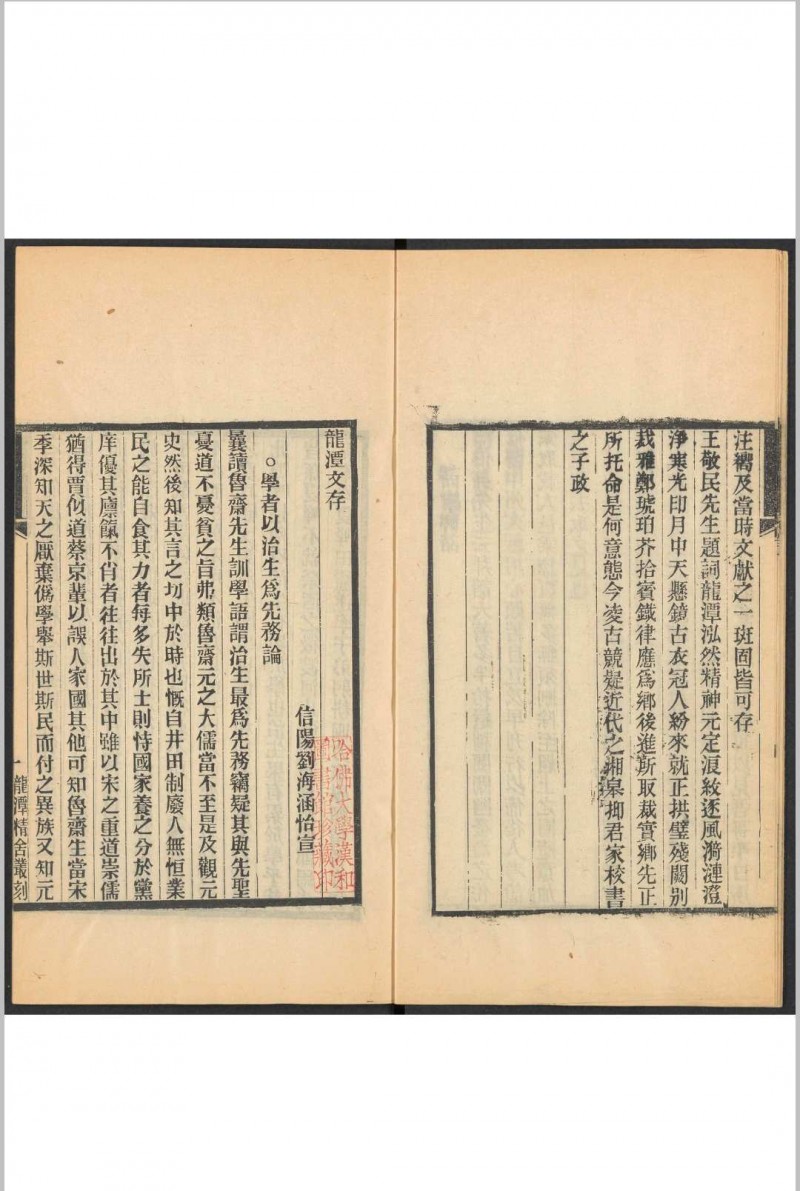 汪嚮及當時文獻之一斑固皆可存
王敬民先生題詞龍潭泓然精神元定浪紋逐風漪漣澄
淨寒光印月中天懸鏡古衣冠人紛來就正拱璧殘闕別
裁雅鄭琥珀芥拾賓鐵律應爲鄉後進所取裁實鄉先正
所托命是何意態今凌古競疑近代之湘皋抑君家校書
之子政
龍潭文存
信陽劉海涵怡宣
學者以治生爲先務論
曩讀魯齋先生訓學語謂治生最爲先務竊疑其與先聖
憂道不憂貧之旨弗類魯齋元之大儒當不至是及觀元
史然後知其言之切中於時也慨自井田制廢人無恒業
民之能自食其力者每多失所士則恃國家養之分於黨
庠優其廩餼不肖者往往出於其中雖以宋之重道崇儒
猶得賈似道蔡京輩以誤人家國其他可知魯齋生當宋
季深知天之厭棄僞學舉斯世斯民而付之異族又知元
一 龍潭精舍叢刻
哈佛大學漢和
圖書館珍藏印